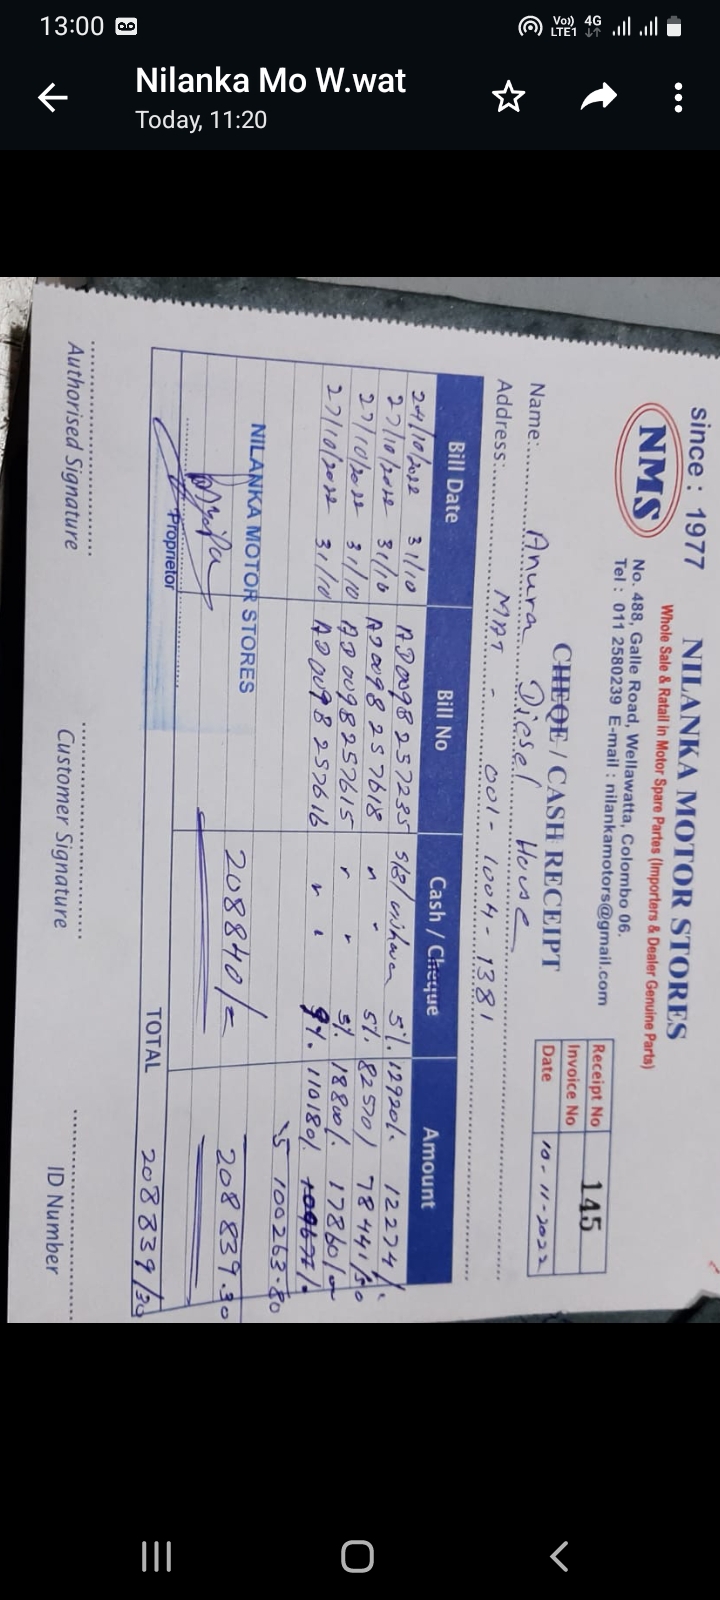 13:00 Vo)) LTE1 4G
Nilanka Mo W.wat
Today, 11:20
since : 1977 NILANKA MOTOR STORES
Whole Sale & Ratail in Motor Spare Partes (Importers & Dealer Genuine Parts)
NMS
No. 488, Galle Road, Wellawatta, Colombo 06.
Tel : 011 2580239 E-mail : nilankamotors@gmail.com
Receipt No 145
Invoice No
CHEQE / CASH RECEIPT
Date 10-11-2022
Name: Anura Diesel House
Address: MAT - 001-1004-1381
Bill Date Bill No Cash / Cheque Amount
24/10/2022 31/10 AD0098257235 5% 12920/. 12274/.
27/10/2022 31/10 AD0098257618 " " 5% 82570/ 78441/50
27/10/2022 31/10 AD0098257615 " " 5% 18800/. 17860/00
27/10/2022 31/10 AD0098257616 " " 9%. 110180/.
100263.80
NILANKA MOTOR STORES
208840/= 208839.30
Proprietor
TOTAL 208839/30
Authorised Signature Customer Signature ID Number